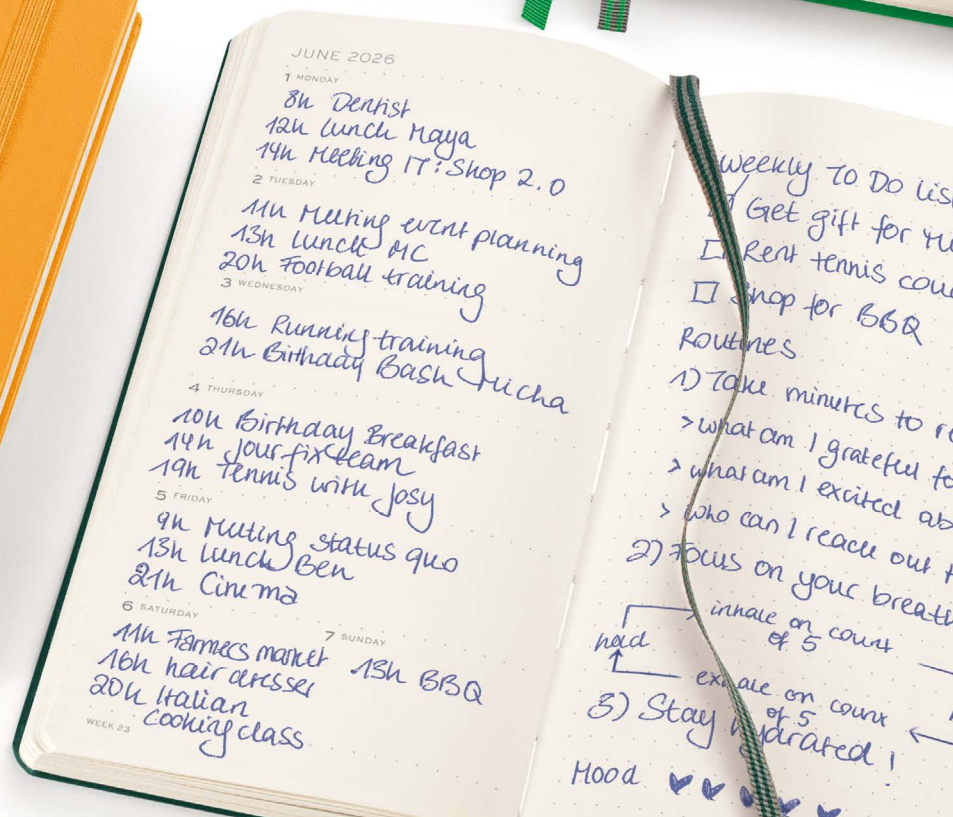 JUNE 2026
1 MONDAY
8h Dentist
12h Lunch Maya
14h Meeting IT: Shop 2.0
2 TUESDAY
11h Meeting event planning
13h Lunch MC
20h Football training
3 WEDNESDAY
16h Running training
21h Birthday Bash Micha
4 THURSDAY
10h Birthday Breakfast
14h jour fix team
19h Tennis with Josy
5 FRIDAY
9h Meeting status quo
13h Lunch Ben
21h Cinema
6 SATURDAY
11h Farmers market
16h hair dresser
20h Italian
cooking class
7 SUNDAY
13h BBQ
WEEK 23
weekly To Do
Get gift for
Rent tennis
Shop for BBQ
Routines
1) Take minutes to
> what am I grateful
> what am I excited
> who can I reach out
2) Focus on your
inhale on count
of 5
hold
exhale on count
of 5
3) Stay hydrated!
Mood